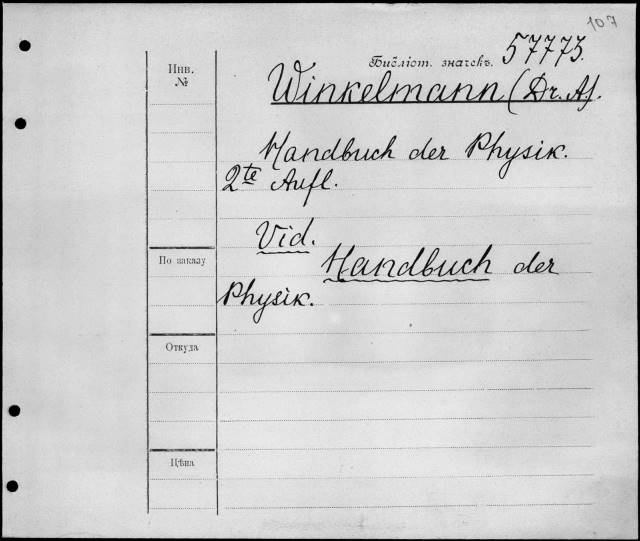 107
Библіот. значекъ. 57773.
Инв.
№
Winkelmann (Dr. A).
Handbuch der Physik.
2te Aufl.
Vid.
Handbuch der
Physik.
По заказу
Откуда
Цѣна